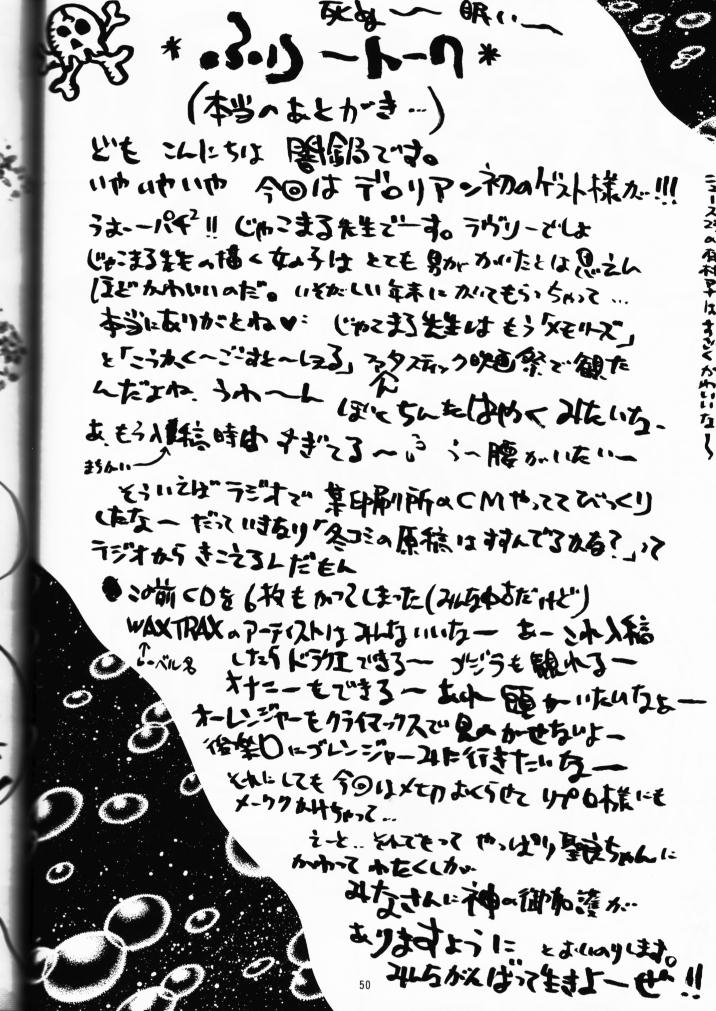 死ぬ〜 眠い〜
* ふりーとーク *
(本当のあとがき…)
ども こんにちは 闇鍋です。
いやいやいや 今回は デロリアン初のゲスト様が!!!
うぉーーパチ²!! じゃこまる先生でーす。ラヴリーでしょ
じゃこまる先生の描く女の子は とても男がかいたとは思えん
ほどかわいいのだ。いそがしい年末にかいてもらっちゃって…
本当にありがとね♥ じゃこまる先生はもう「メモリーズ」
と「こうかく〜ごーすと〜しぇる」ファンタスティック映画祭で観た
んだよね、うわ〜ん ぼくちんたはやく みたいな-
あ、もう入稿時は すぎてる〜 う〜腰がいたいー
まちがい
そういえばラジオで 某印刷所のCMやっててびっくり
したなー だっていきなり「冬コミの原稿はすすんでるかな?」って
ラジオから きこえるんだもん
この前CDを6枚もかってしまった(みんな中古だけど)
WAXTRAXのアーティストは みんないいなー あーこれ入稿
レーベル名
したらドラクエできる〜 ゴジラも観れるー
オナニーもできる〜 あれ 頭がいたいなぁー
オーレンジャーもクライマックスで 見のがせないよー
後楽口にゴレンジャーみに行きたいなー
それにしても 今回はメチカ おくらせて リプロ様にも
メーワクかけちゃって…
えーと…そんでもって やっぱり聖良ちゃんに
かわって わたくしが
みなさんに神の御加護が
ありますように とおいのりします。
みんながんばって生きよーぜ!!
ニュース23の
はすごくかわいいな〜
50